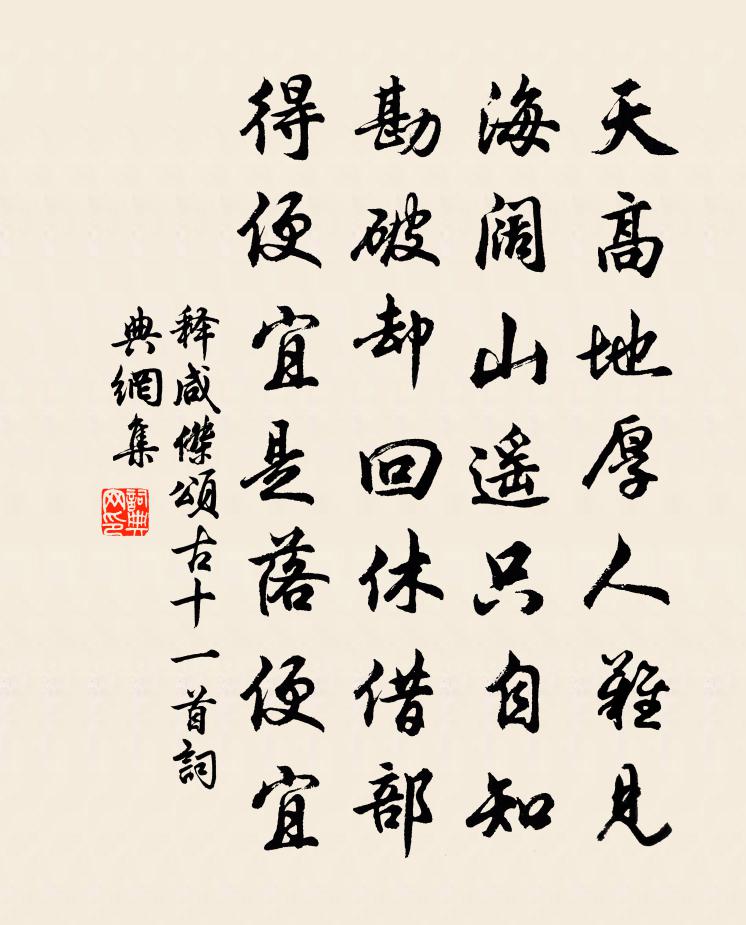 天高地厚人難見
海阔山遥只自知
勘破却回休借部
得便宜是落便宜
释咸傑頌古十一首詞
典網集
詞典网印